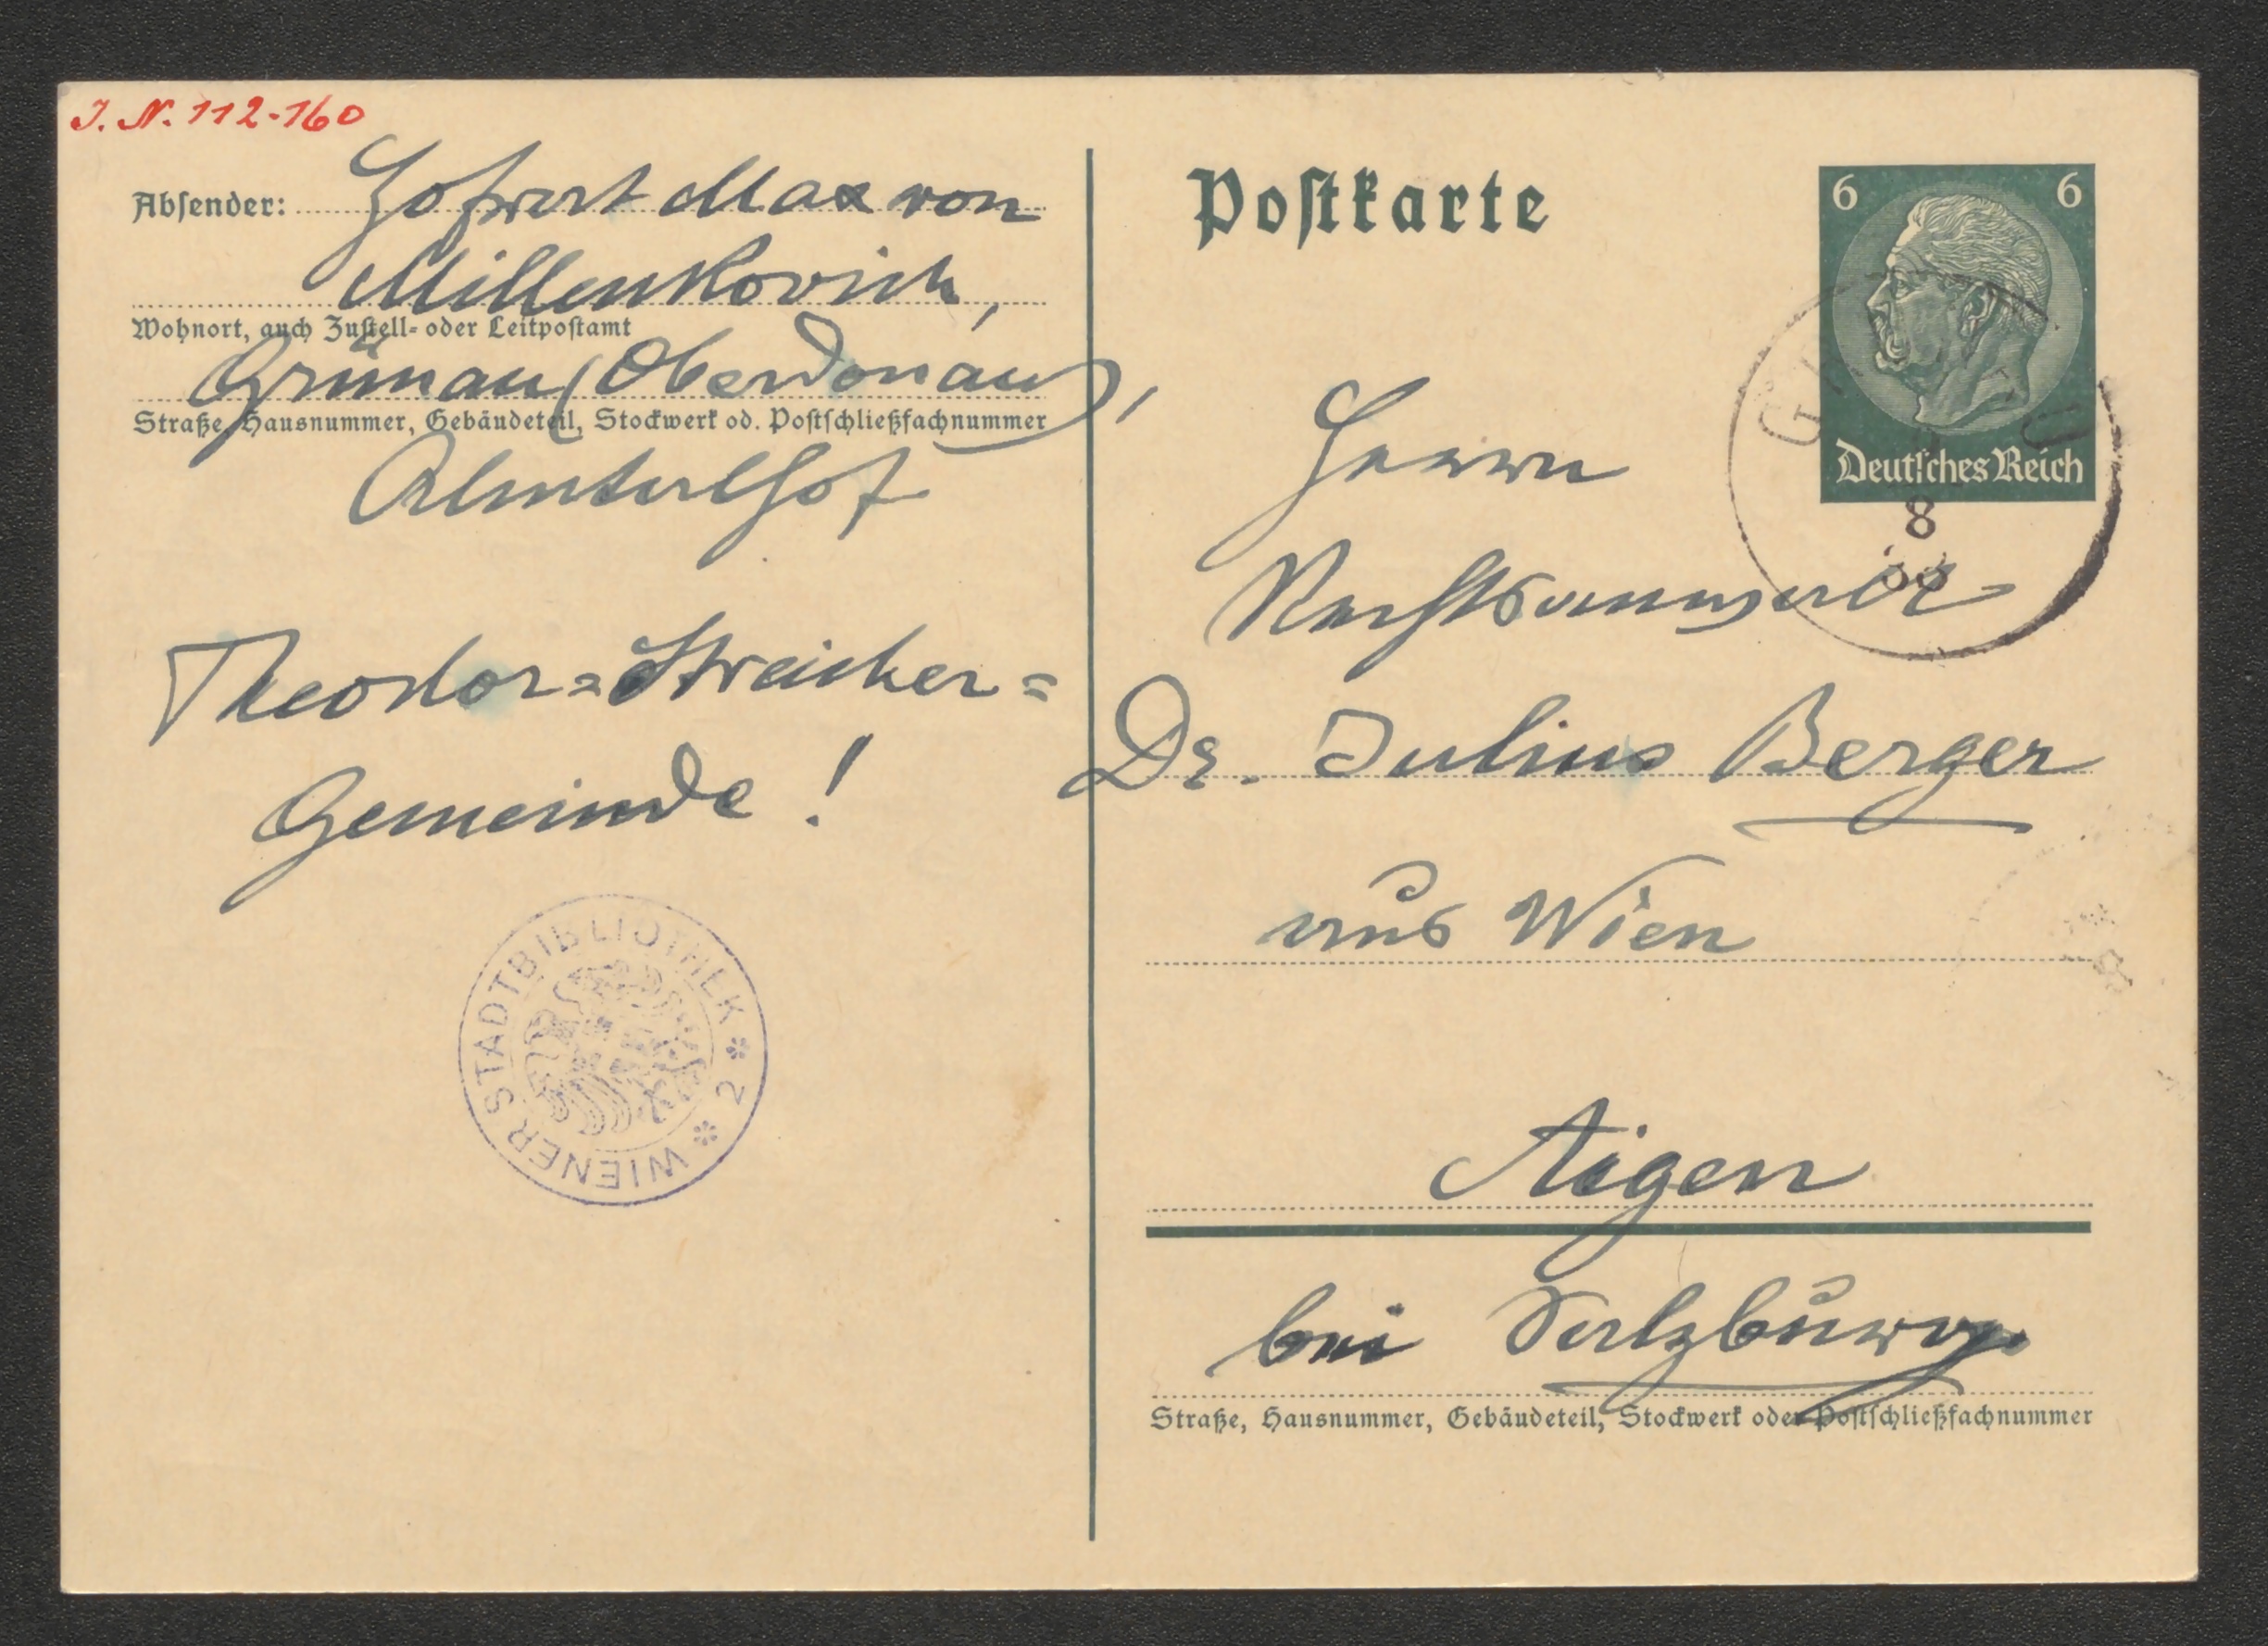 J. N. 112-160
Absender: Hofrat Max von
Millenkovich,
Wohnort, auch Zustell- oder Leitpostamt
Grünau (Oberdonau),
Straße, Hausnummer, Gebäudeteil, Stockwerk od. Postschließfachnummer
Almtalhof
Theodor-Streicher-
Gemeinde!
WIENER STADTBIBLIOTHEK * 2 *
Postkarte
6 6
Deutsches Reich
8
Herrn
Rechtsanwalt
Dr. Julius Berger
aus Wien
Aigen
bei Salzburg
Straße, Hausnummer, Gebäudeteil, Stockwerk oder Postschließfachnummer